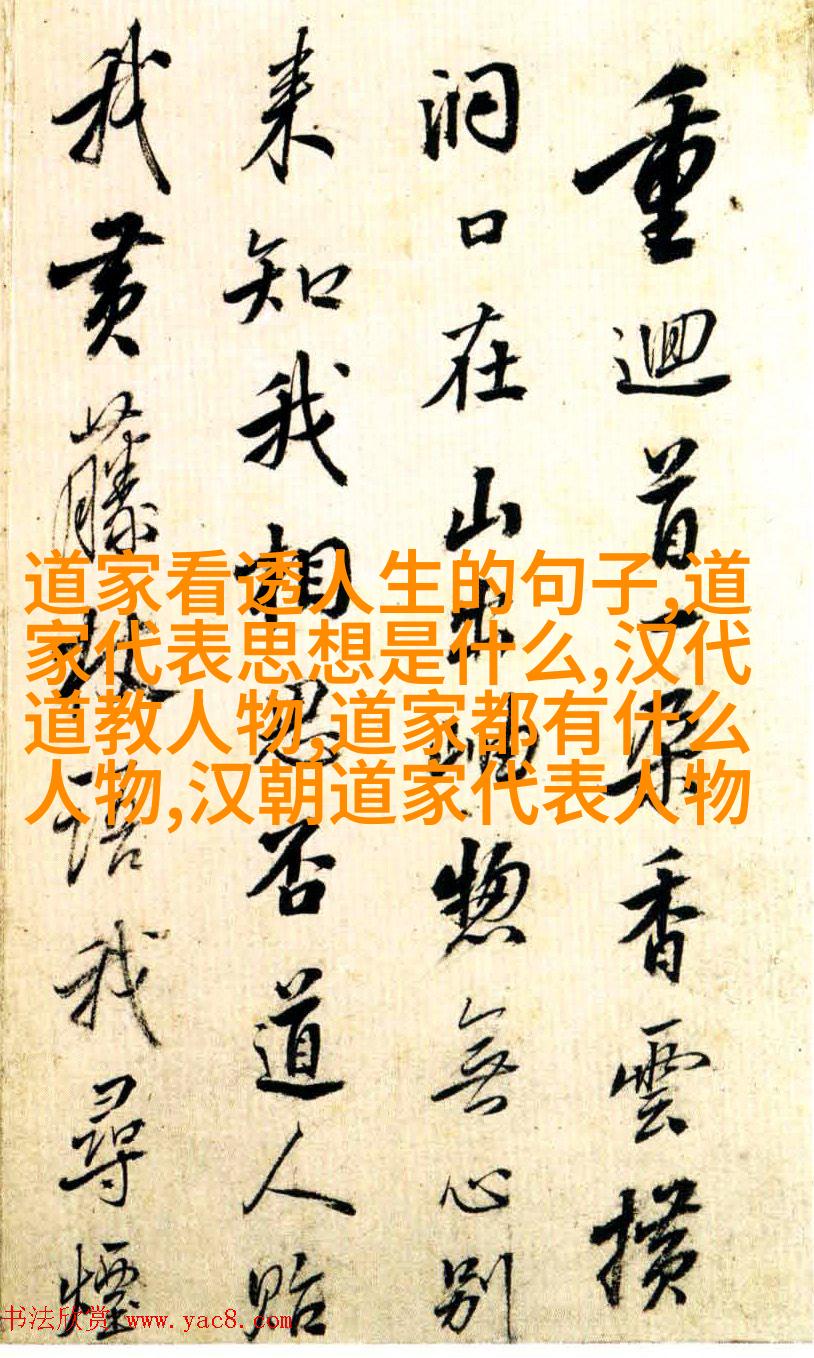 重迴首一朵香雲横
洞口在山出岫惣無心別
来知我相思否道人貽
我黄藤我尋煙
道家看透人生的句子,道
家代表思想是什么,汉代
道教人物,道家都有什么
人物,汉朝道家代表人物
书法欣赏 www.yac8.com